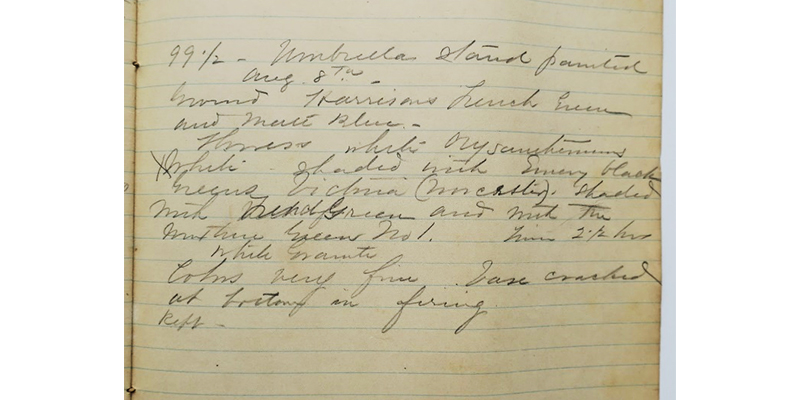 99 1/2 - Umbrella Stand painted
Aug. 8th -
Ground Harrisons French Green
and Matt Blue. -
white Crysanthemums
White shaded with Emery black
Victoria (Worcester). Shaded
with Green and with the
Green No 1. Time 2 1/2 hrs
White Granite
Colors very fine. Vase cracked
at bottom in firing.
Kept -